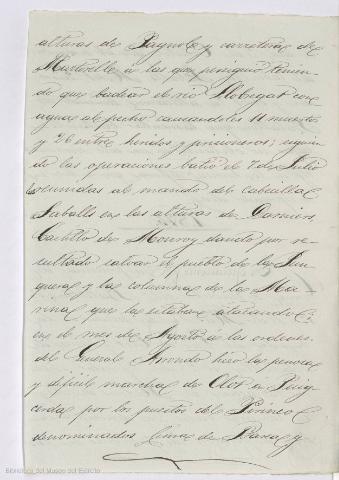 alturas de Pagnols y carretera de
Martorell a las que persiguió tenien-
do que badear el rio Llobregat con
agua al pecho causandoles 11 muertos
y 26 entre heridos y prisioneros; siguien-
do las operaciones batió el 7 de Julio
columnas al mando del cabecilla
Saballs en las alturas de
Castillo de Monroy dando por re-
sultado salvar el pueblo de la Jun-
quera y las columnas de la Ma-
rina que las estaban atacando
en el mes de Agosto a las ordenes
del General Arrondo hizo las penosas
y dificiles marchas de Olot a Puig-
cerdá por los puertos del Pirineo
denominados Cimas de y
Biblioteca del Museo del Ejército